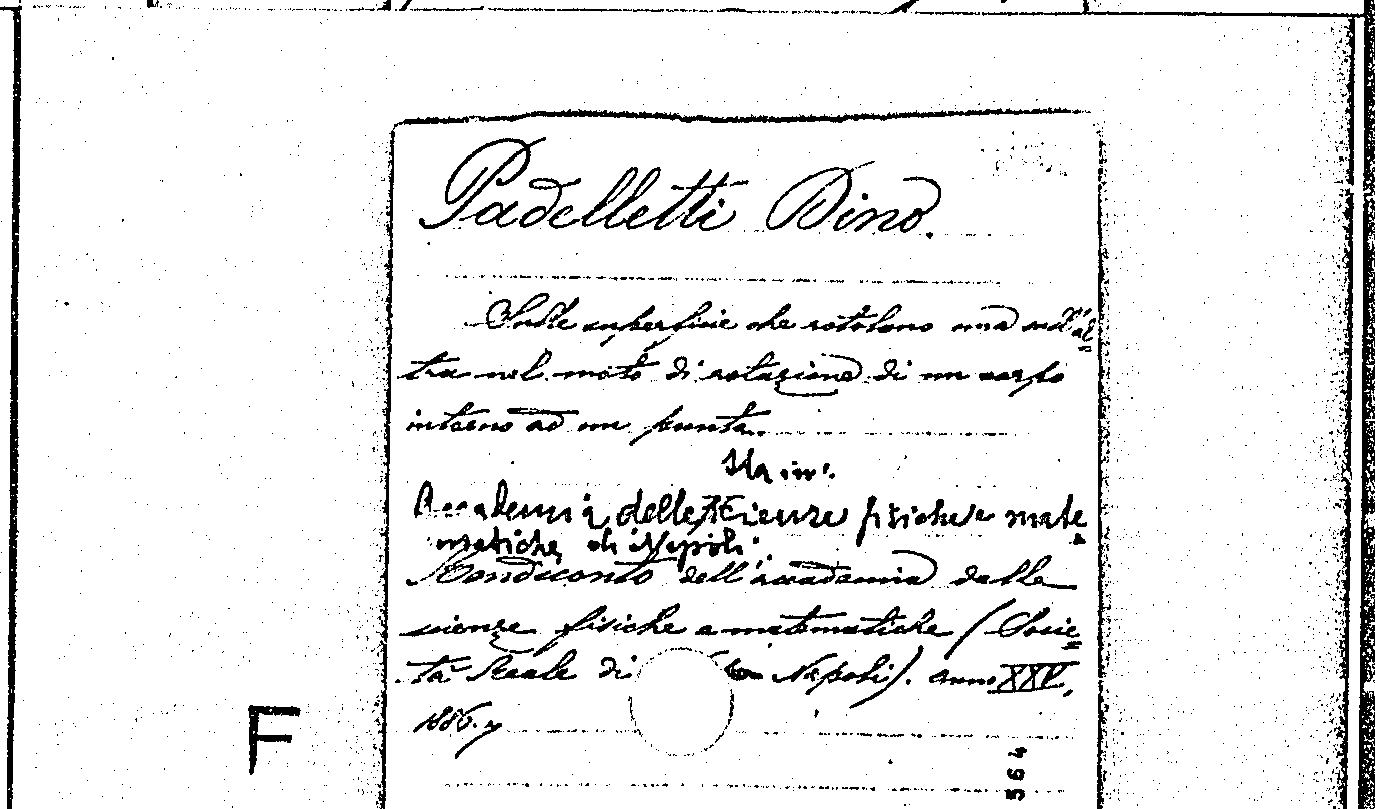 Padelletti Dino.
Sulle superficie che rotolano una sull'al=
tra nel moto di rotazione di un corpo
intorno ad un punto.
Sta in:
Accademia delle Scienze fisiche e mate
matiche di Napoli:
Rendiconto dell'accademia delle
scienze fisiche e matematiche (Socie=
tà Reale di Napoli). anno XXV,
1886.
F
564